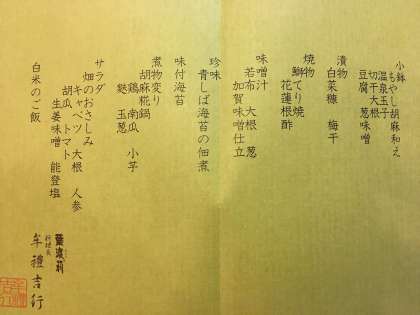 小鉢
もやし胡麻和え
温泉玉子
切干大根
豆腐 葱味噌
漬物
白菜糠 梅干
焼物
鰤てり焼
花蓮根酢
味噌汁
若布 大根 葱
加賀味噌仕立
珍味
青しば海苔の佃煮
味付海苔
煮物変り
胡麻糀鍋
鶏 南瓜 小芋
麩 玉葱
サラダ
畑のおさしみ
キャベツ 大根 人参
胡瓜 トマト
生姜味噌 能登塩
白米のご飯
料理長
牟禮吉行